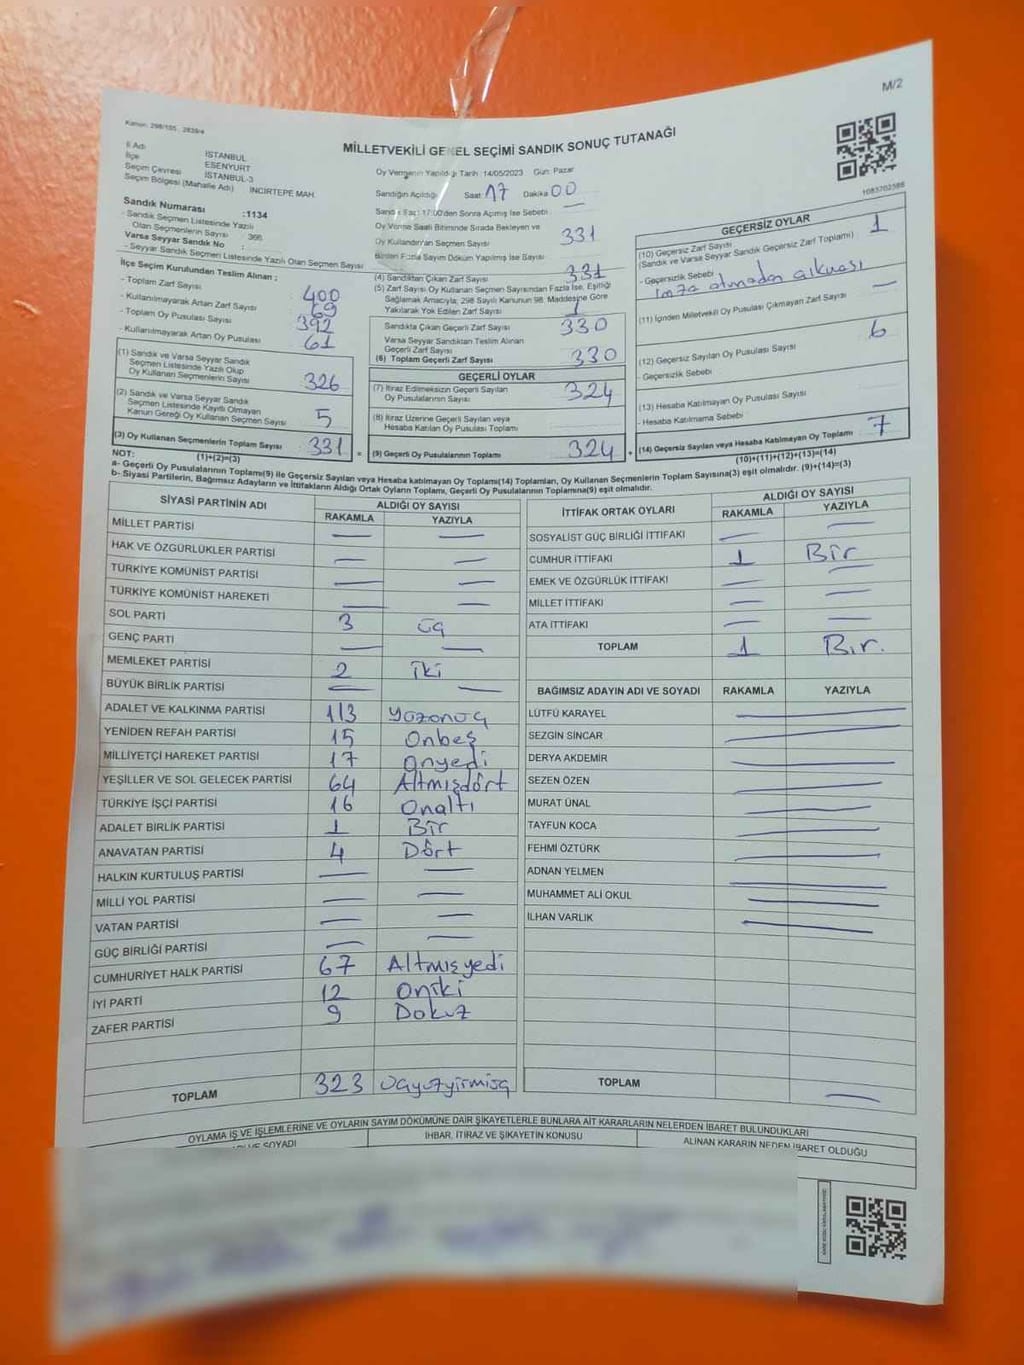 M/2
Kanun: 298/105 , 2839/4
MİLLETVEKİLİ GENEL SEÇİMİ SANDIK SONUÇ TUTANAĞI
1083702586
İl Adı İSTANBUL
İlçe ESENYURT
Seçim Çevresi İSTANBUL-3
Seçim Bölgesi (Mahalle Adı) İNCİRTEPE MAH.
Sandık Numarası :1134
- Sandık Seçmen Listesinde Yazılı
Olan Seçmenlerin Sayısı : 366
Varsa Seyyar Sandık No :
- Seyyar Sandık Seçmen Listesinde Yazılı Olan Seçmen Sayısı
İlçe Seçim Kurulundan Teslim Alınan ;
- Toplam Zarf Sayısı 400
- Kullanılmayarak Artan Zarf Sayısı 69
- Toplam Oy Pusulası Sayısı 392
- Kullanılmayarak Artan Oy Pusulası 61
(1) Sandık ve Varsa Seyyar Sandık
Seçmen Listesinde Yazılı Olup
Oy Kullanan Seçmenlerin Sayısı 326
(2) Sandık ve Varsa Seyyar Sandık
Seçmen Listesinde Kayıtlı Olmayan
Kanun Gereği Oy Kullanan Seçmen Sayısı 5
(3) Oy Kullanan Seçmenlerin Toplam Sayısı 331 =
Oy Vermenin Yapıldığı Tarih 14/05/2023 Gün: Pazar
Sandığın Açıldığı Saat 17 Dakika 00
Sandık Saat 17:00'den Sonra Açmış İse Sebebi —
Oy Verme Saati Bitiminde Sırada Bekleyen ve
Oy Kullandırılan Seçmen Sayısı 331
Birden Fazla Sayım Döküm Yapılmış İse Sayısı
(4) Sandıktan Çıkan Zarf Sayısı 331
(5) Zarf Sayısı Oy Kullanan Seçmen Sayısından Fazla İse, Eşitliği
Sağlamak Amacıyla; 298 Sayılı Kanunun 98. Maddesine Göre
Yakılarak Yok Edilen Zarf Sayısı 1
Sandıkta Çıkan Geçerli Zarf Sayısı 330
Varsa Seyyar Sandıktan Teslim Alınan
Geçerli Zarf Sayısı
(6) Toplam Geçerli Zarf Sayısı 330
GEÇERLİ OYLAR
(7) İtiraz Edilmeksizin Geçerli Sayılan
Oy Pusulalarının Sayısı 324
(8) İtiraz Üzerine Geçerli Sayılan veya
Hesaba Katılan Oy Pusulası Toplamı
(9) Geçerli Oy Pusulalarının Toplamı 324 +
GEÇERSİZ OYLAR
(10) Geçersiz Zarf Sayısı
(Sandık ve Varsa Seyyar Sandık Geçersiz Zarf Toplamı) 1
- Geçersizlik Sebebi
(11) İçinden Milletvekili Oy Pusulası Çıkmayan Zarf Sayısı —
(12) Geçersiz Sayılan Oy Pusulası Sayısı 6
- Geçersizlik Sebebi
(13) Hesaba Katılmayan Oy Pusulası Sayısı
- Hesaba Katılmama Sebebi
(14) Geçersiz Sayılan veya Hesaba Katılmayan Oy Toplamı 7
NOT: (1)+(2)=(3) (10)+(11)+(12)+(13)=(14)
a- Geçerli Oy Pusulalarının Toplamı(9) ile Geçersiz Sayılan veya Hesaba katılmayan Oy Toplamı(14) Toplamları, Oy Kullanan Seçmenlerin Toplam Sayısına(3) eşit olmalıdır. (9)+(14)=(3)
b- Siyasi Partilerin, Bağımsız Adayların ve İttifakların Aldığı Ortak Oyların Toplamı, Geçerli Oy Pusulalarının Toplamına(9) eşit olmalıdır.
SİYASİ PARTİNİN ADI ALDIĞI OY SAYISI
RAKAMLA YAZIYLA
MİLLET PARTİSİ — —
HAK VE ÖZGÜRLÜKLER PARTİSİ — —
TÜRKİYE KOMÜNİST PARTİSİ — —
TÜRKİYE KOMÜNİST HAREKETİ — —
SOL PARTİ 3 Üç
GENÇ PARTİ — —
MEMLEKET PARTİSİ 2 İki
BÜYÜK BİRLİK PARTİSİ — —
ADALET VE KALKINMA PARTİSİ 113 Yüzonüç
YENİDEN REFAH PARTİSİ 15 Onbeş
MİLLİYETÇİ HAREKET PARTİSİ 17 Onyedi
YEŞİLLER VE SOL GELECEK PARTİSİ 64 Altmışdört
TÜRKİYE İŞÇİ PARTİSİ 16 Onaltı
ADALET BİRLİK PARTİSİ 1 Bir
ANAVATAN PARTİSİ 4 Dört
HALKIN KURTULUŞ PARTİSİ — —
MİLLİ YOL PARTİSİ — —
VATAN PARTİSİ — —
GÜÇ BİRLİĞİ PARTİSİ — —
CUMHURİYET HALK PARTİSİ 67 Altmışyedi
İYİ PARTİ 12 Oniki
ZAFER PARTİSİ 9 Dokuz
TOPLAM 323 Üçyüzyirmiüç
İTTİFAK ORTAK OYLARI ALDIĞI OY SAYISI
RAKAMLA YAZIYLA
SOSYALİST GÜÇ BİRLİĞİ İTTİFAKI — —
CUMHUR İTTİFAKI 1 Bir
EMEK VE ÖZGÜRLÜK İTTİFAKI — —
MİLLET İTTİFAKI — —
ATA İTTİFAKI — —
TOPLAM 1 Bir.
BAĞIMSIZ ADAYIN ADI VE SOYADI RAKAMLA YAZIYLA
LÜTFÜ KARAYEL
SEZGİN SİNCAR
DERYA AKDEMİR
SEZEN ÖZEN
MURAT ÜNAL
TAYFUN KOCA
FEHMİ ÖZTÜRK
ADNAN YELMEN
MUHAMMET ALİ OKUL
İLHAN VARLIK
TOPLAM —
OYLAMA İŞ VE İŞLEMLERİNE VE OYLARIN SAYIM DÖKÜMÜNE DAİR ŞİKAYETLERLE BUNLARA AİT KARARLARIN NELERDEN İBARET BULUNDUKLARI
SOYADI İHBAR, İTİRAZ VE ŞİKAYETİN KONUSU ALINAN KARARIN NEDEN İBARET OLDUĞU